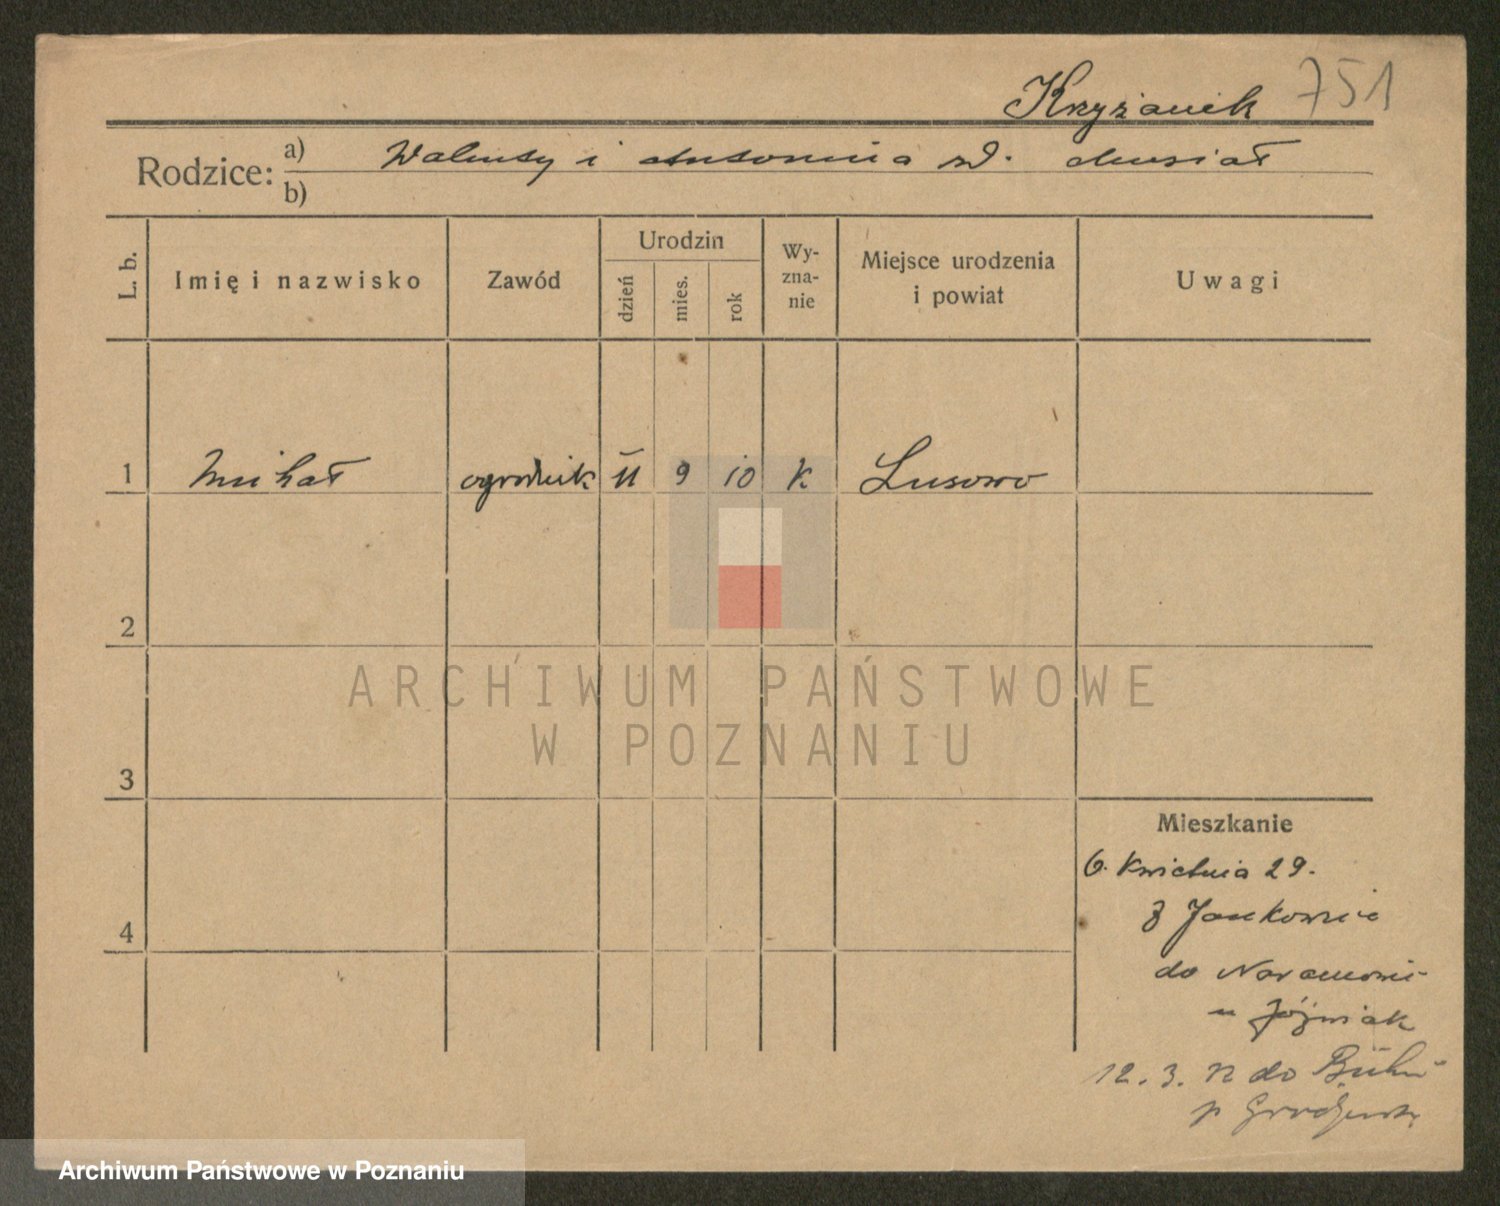 Krzyżanik 751
Rodzice: a) Walenty i Antonina zd. Musiał
b)
L. b.
Imię i nazwisko
Zawód
Urodzin
dzień
mies.
rok
Wy-
zna-
nie
Miejsce urodzenia
i powiat
Uwagi
1 Michał ogrodnik 11 9 10 k Lusowo
2
3
4
Mieszkanie
6. Kwietnia 29.
z Jankowic
do Naramowic
u Jóźwiak
12. 3. do
p
ARCHIWUM PAŃSTWOWE
W POZNANIU
Archiwum Państwowe w Poznaniu